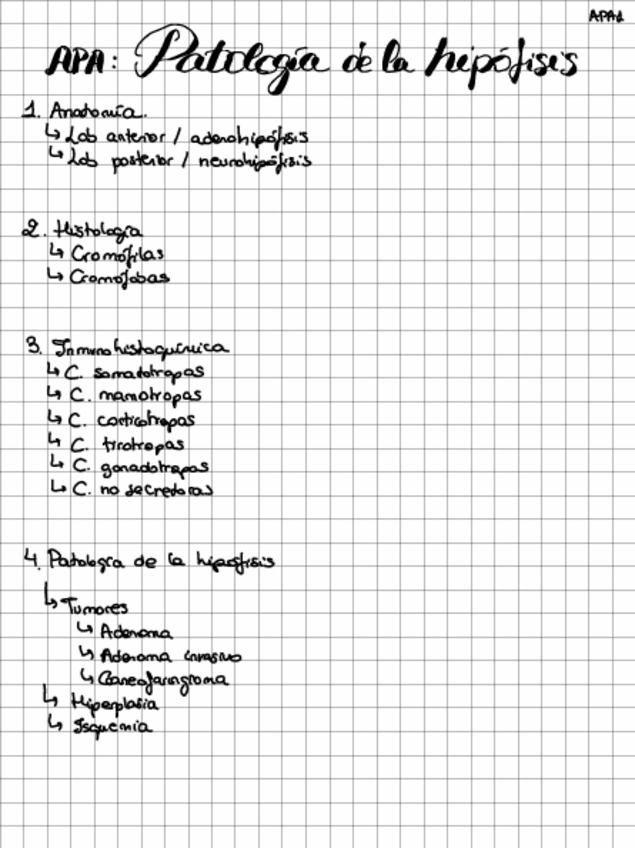 APA1
APA: Patología de la hipófisis
1. Anatomía.
↳ Lob anterior / adenohipófisis
↳ Lob posterior / neurohipófisis
2. Histología
↳ Cromófilas
↳ Cromófobas
3. Inmunohistoquímica
↳ C. somatotropas
↳ C. mamotropas
↳ C. corticotropas
↳ C. tirotropas
↳ C. gonadotropas
↳ C. no secretoras
4. Patología de la hipófisis
↳ Tumores
↳ Adenoma
↳ Adenoma invasivo
↳ Craneofaringioma
↳ Hiperplasia
↳ Isquemia